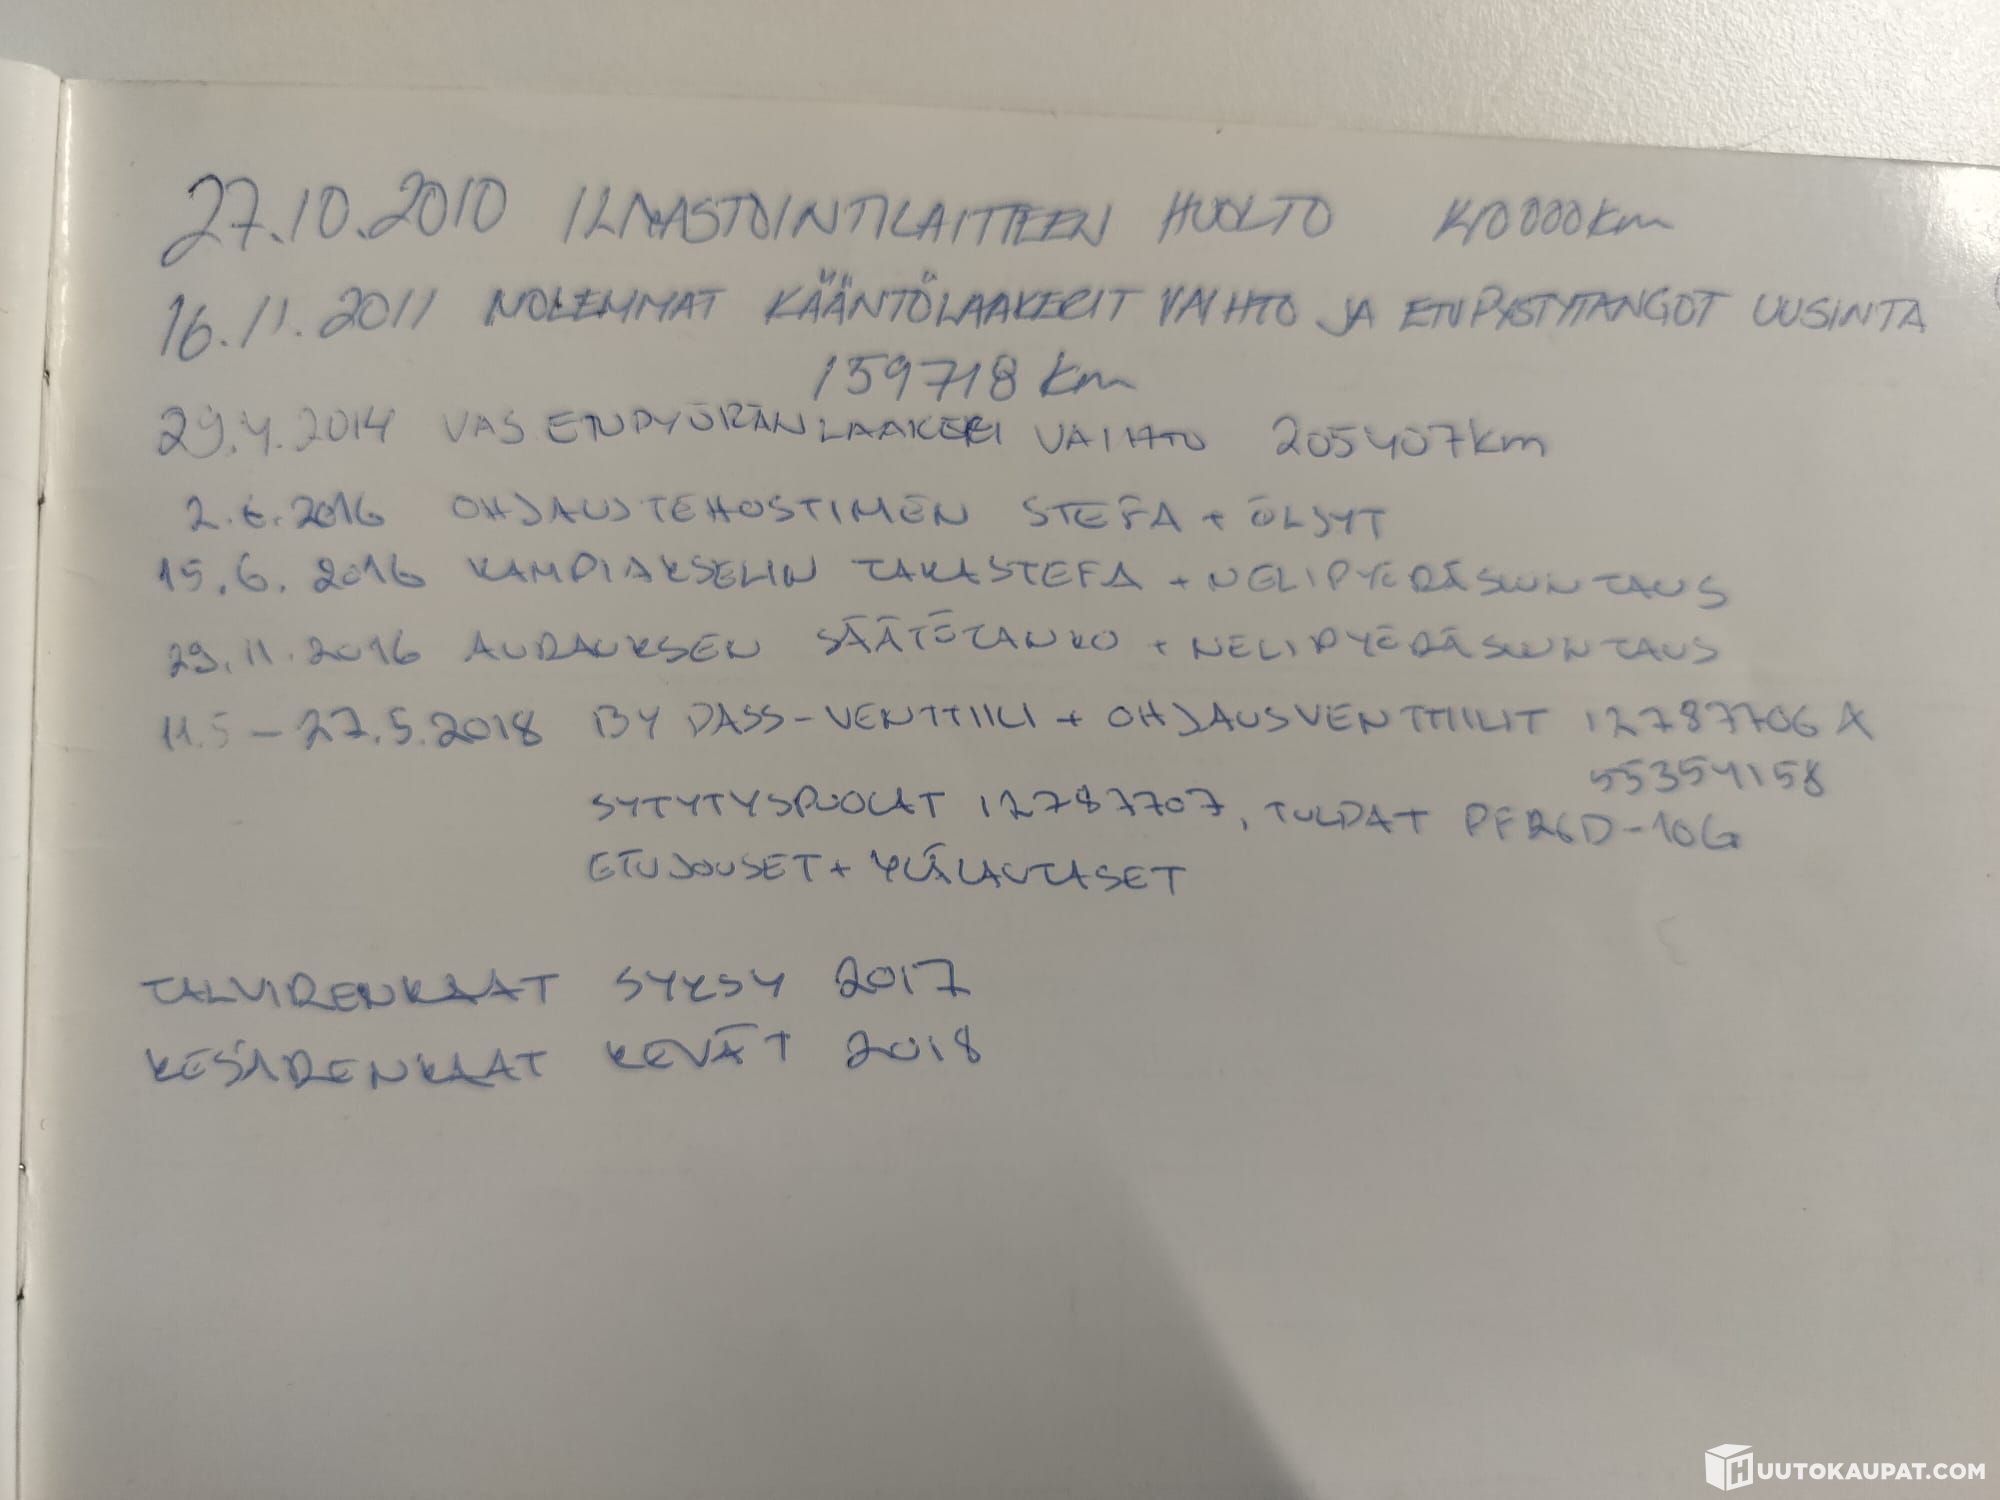 27.10.2010 ILMASTOINTILAITTEEN HUOLTO 140000km
16.11.2011 MOLEMMAT KÄÄNTÖLAAKERIT VAIHTO JA ETUPYSTYTANGOT UUSINTA
159718 km
29.4.2014 VAS ETUPYÖRÄNLAAKERI VAIHTO 205407km
2.6.2016 OHJAUSTEHOSTIMEN STEFA + ÖLJYT
15.6.2016 KAMPIAKSELIN TAKASTEFA + NELIPYÖRÄSUUNTAUS
29.11.2016 AURAUKSEN SÄÄTÖTANKO + NELIPYÖRÄSUUNTAUS
11.5 – 27.5.2018 BY PASS-VENTTIILI + OHJAUSVENTTIILIT 12787706 A
55354158
SYTYTYSPUOLAT 12787707, TULPAT PFR6D-10G
ETUJOUSET + YLÄLAUTASET
TALVIRENKAAT SYKSY 2017
KESÄRENKAAT KEVÄT 2018
HUUTOKAUPAT.COM